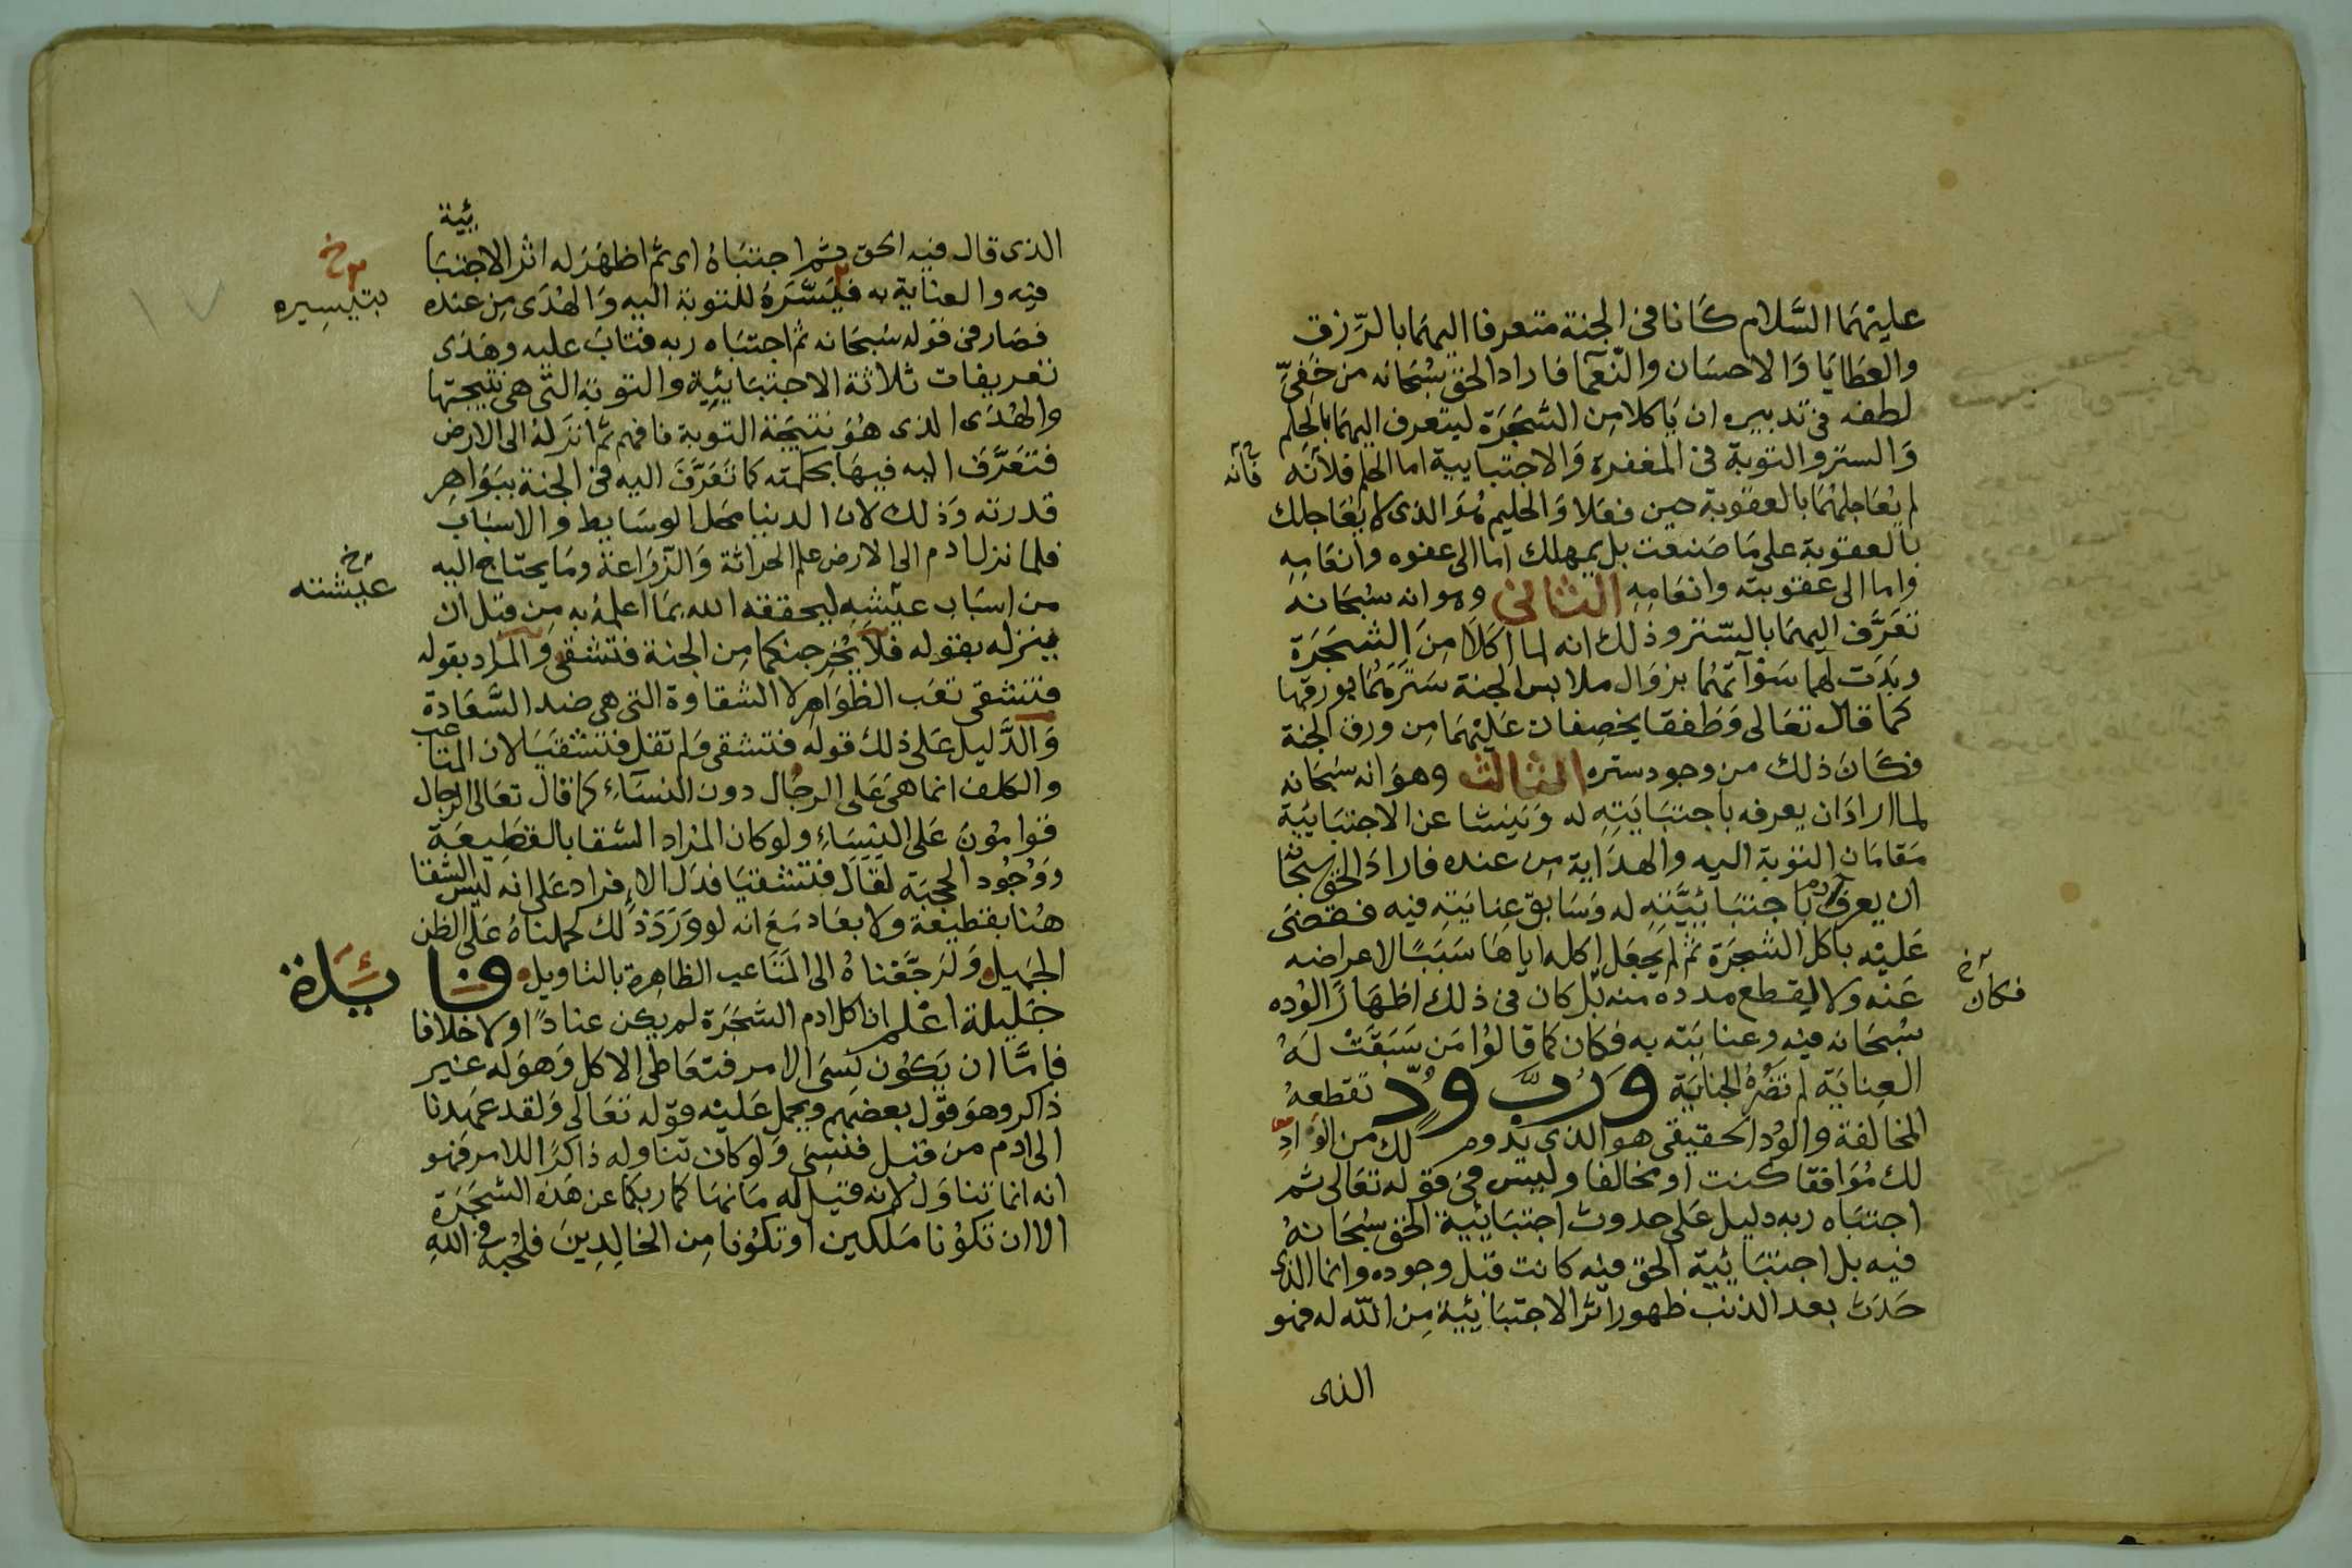 عليهما السلام كانا في الجنة متعرفا اليهما بالرزق
والعطايا والاحسان والنعما فاراد الحق سبحانه من خفي
لطفه في تدبيره ان ياكلا من الشجرة ليتعرف اليهما بالحلم
والستر والتوبة في المغفرة والاجتبايية اما الحلم فلانه
فانه
لم يعاجلهما بالعقوبة حين فعلا والحليم هو الذي لا يعاجلك
بالعقوبة على ما صنعت بل يمهلك اما الى عفوه وانعامه
واما الى عقوبته وانعامه الثاني وهو انه سبحانه
تعرف اليهما بالستر وذلك انه لما اكلا من الشجرة
وبدت لهما سوآتهما بزوال ملابس الجنة سترهما بورقها
كما قال تعالى وطفقا يخصفان عليهما من ورق الجنة
فكان ذلك من وجود ستره الثالث وهو انه سبحانه
لما اراد ان يعرفه باجتبايته له وينشا عن الاجتبائية
مقامان التوبة اليه والهداية من عنده فاراد الحق سبحانه
ان يعرف ادم باجتبائيته له وسابق عنايته فيه فقضى
عليه باكل الشجرة ثم لم يجعل اكله اياها سببا لاعراضه
عنه ولا لقطع مدده منه بل كان في ذلك اظهارا لوده
فكان خ
سبحانه فيه وعنايته به فكان كما قالوا من سبقت له
العناية لم تضره الجناية ورب ود تقطعه
المخالفة والود الحقيقي هو الذي يدوم لك من الواد
لك موافقا كنت او مخالفا وليس في قوله تعالى ثم
اجتباه ربه دليل على حدوث اجتبائية الحق سبحانه
فيه بل اجتبائية الحق فيه كانت قبل وجوده وانما الذي
حدث بعد الذنب ظهور اثر الاجتبائية من الله له فهو
الذي
الذي قال فيه الحق ثم اجتباه اي ثم اظهر له اثر الاجتبائية
فيه والعناية به فيسره للتوبة اليه والهدى من عنده
بتيسيره خ
فصار في قوله سبحانه ثم اجتباه ربه فتاب عليه وهدى
تعريفات ثلاثة الاجتبايئية والتوبة التي هي نتيجتها
والهدى الذي هو نتيجة التوبة فافهم ثم انزله الى الارض
فتعرف اليه فيها بحكمته كما تعرف اليه في الجنة ببواهر
قدرته وذلك لان الدنيا محل الوسايط والاسباب
فلما نزل ادم الى الارض علم الحراثة والزراعة وما يحتاج اليه
من اسباب عيشه ليحققه الله بما اعلمه به من قبل ان
عيشته خ
ينزله بقوله فلا يخرجنكما من الجنة فتشقى والمراد بقوله
فتشقى تعب الظواهر لا الشقاوة التي هي ضد السعادة
والدليل على ذلك قوله فتشقى ولم تقل فتشقيا لان المتاعب
والكلف انما هي على الرجال دون النساء كما قال تعالى الرجال
قوامون على النساء ولو كان المراد الشقا بالقطيعة
ووجود الحجبة لقال فتشقيا فدل الافراد على انه ليس الشقا
هنا بقطيعة ولا بعاد مع انه لو ورد ذلك لحملناه على الظن
الجميل ولرجعناه الى المتاعب الظاهرة بالتاويل فائدة
جليلة اعلم ان اكل ادم الشجرة لم يكن عنادا ولا خلافا
فاما ان يكون نسي الامر فتعاطى الاكل وهو له غير
ذاكر وهو قول بعضهم ويحمل عليه قوله تعالى ولقد عهدنا
الى ادم من قبل فنسي ولو كان تناوله ذاكرا للامر فهو
انه انما تناول لانه قيل له ما نهاكما ربكما عن هذه الشجرة
الا ان تكونا ملكين او تكونا من الخالدين فلحبه في الله